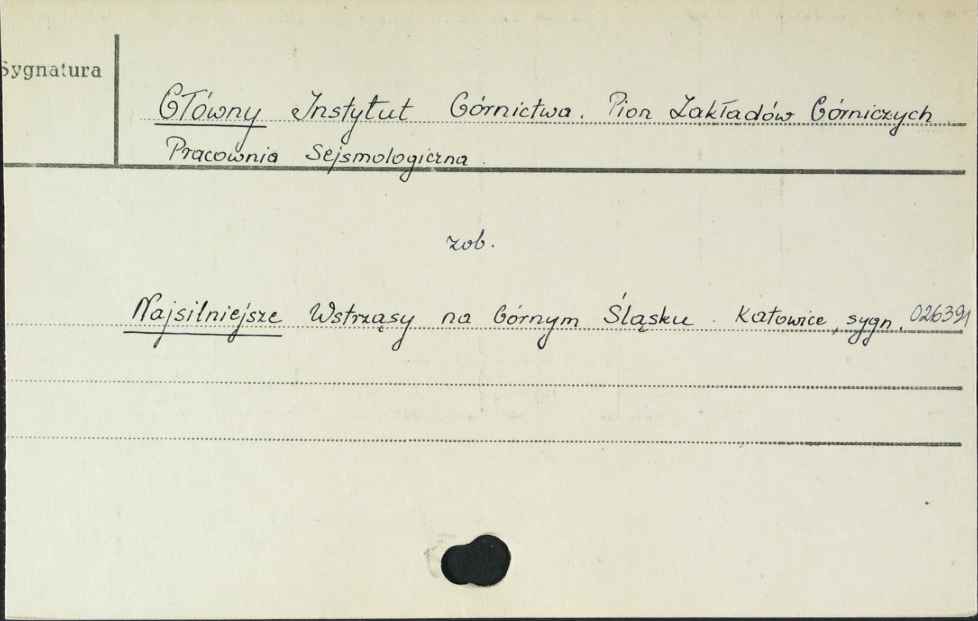 Sygnatura
Główny Instytut Górnictwa. Pion Zakładów Górniczych.
Pracownia Sejsmologiczna.
zob.
Najsilniejsze Wstrząsy na Górnym Śląsku. Katowice, sygn. 026391